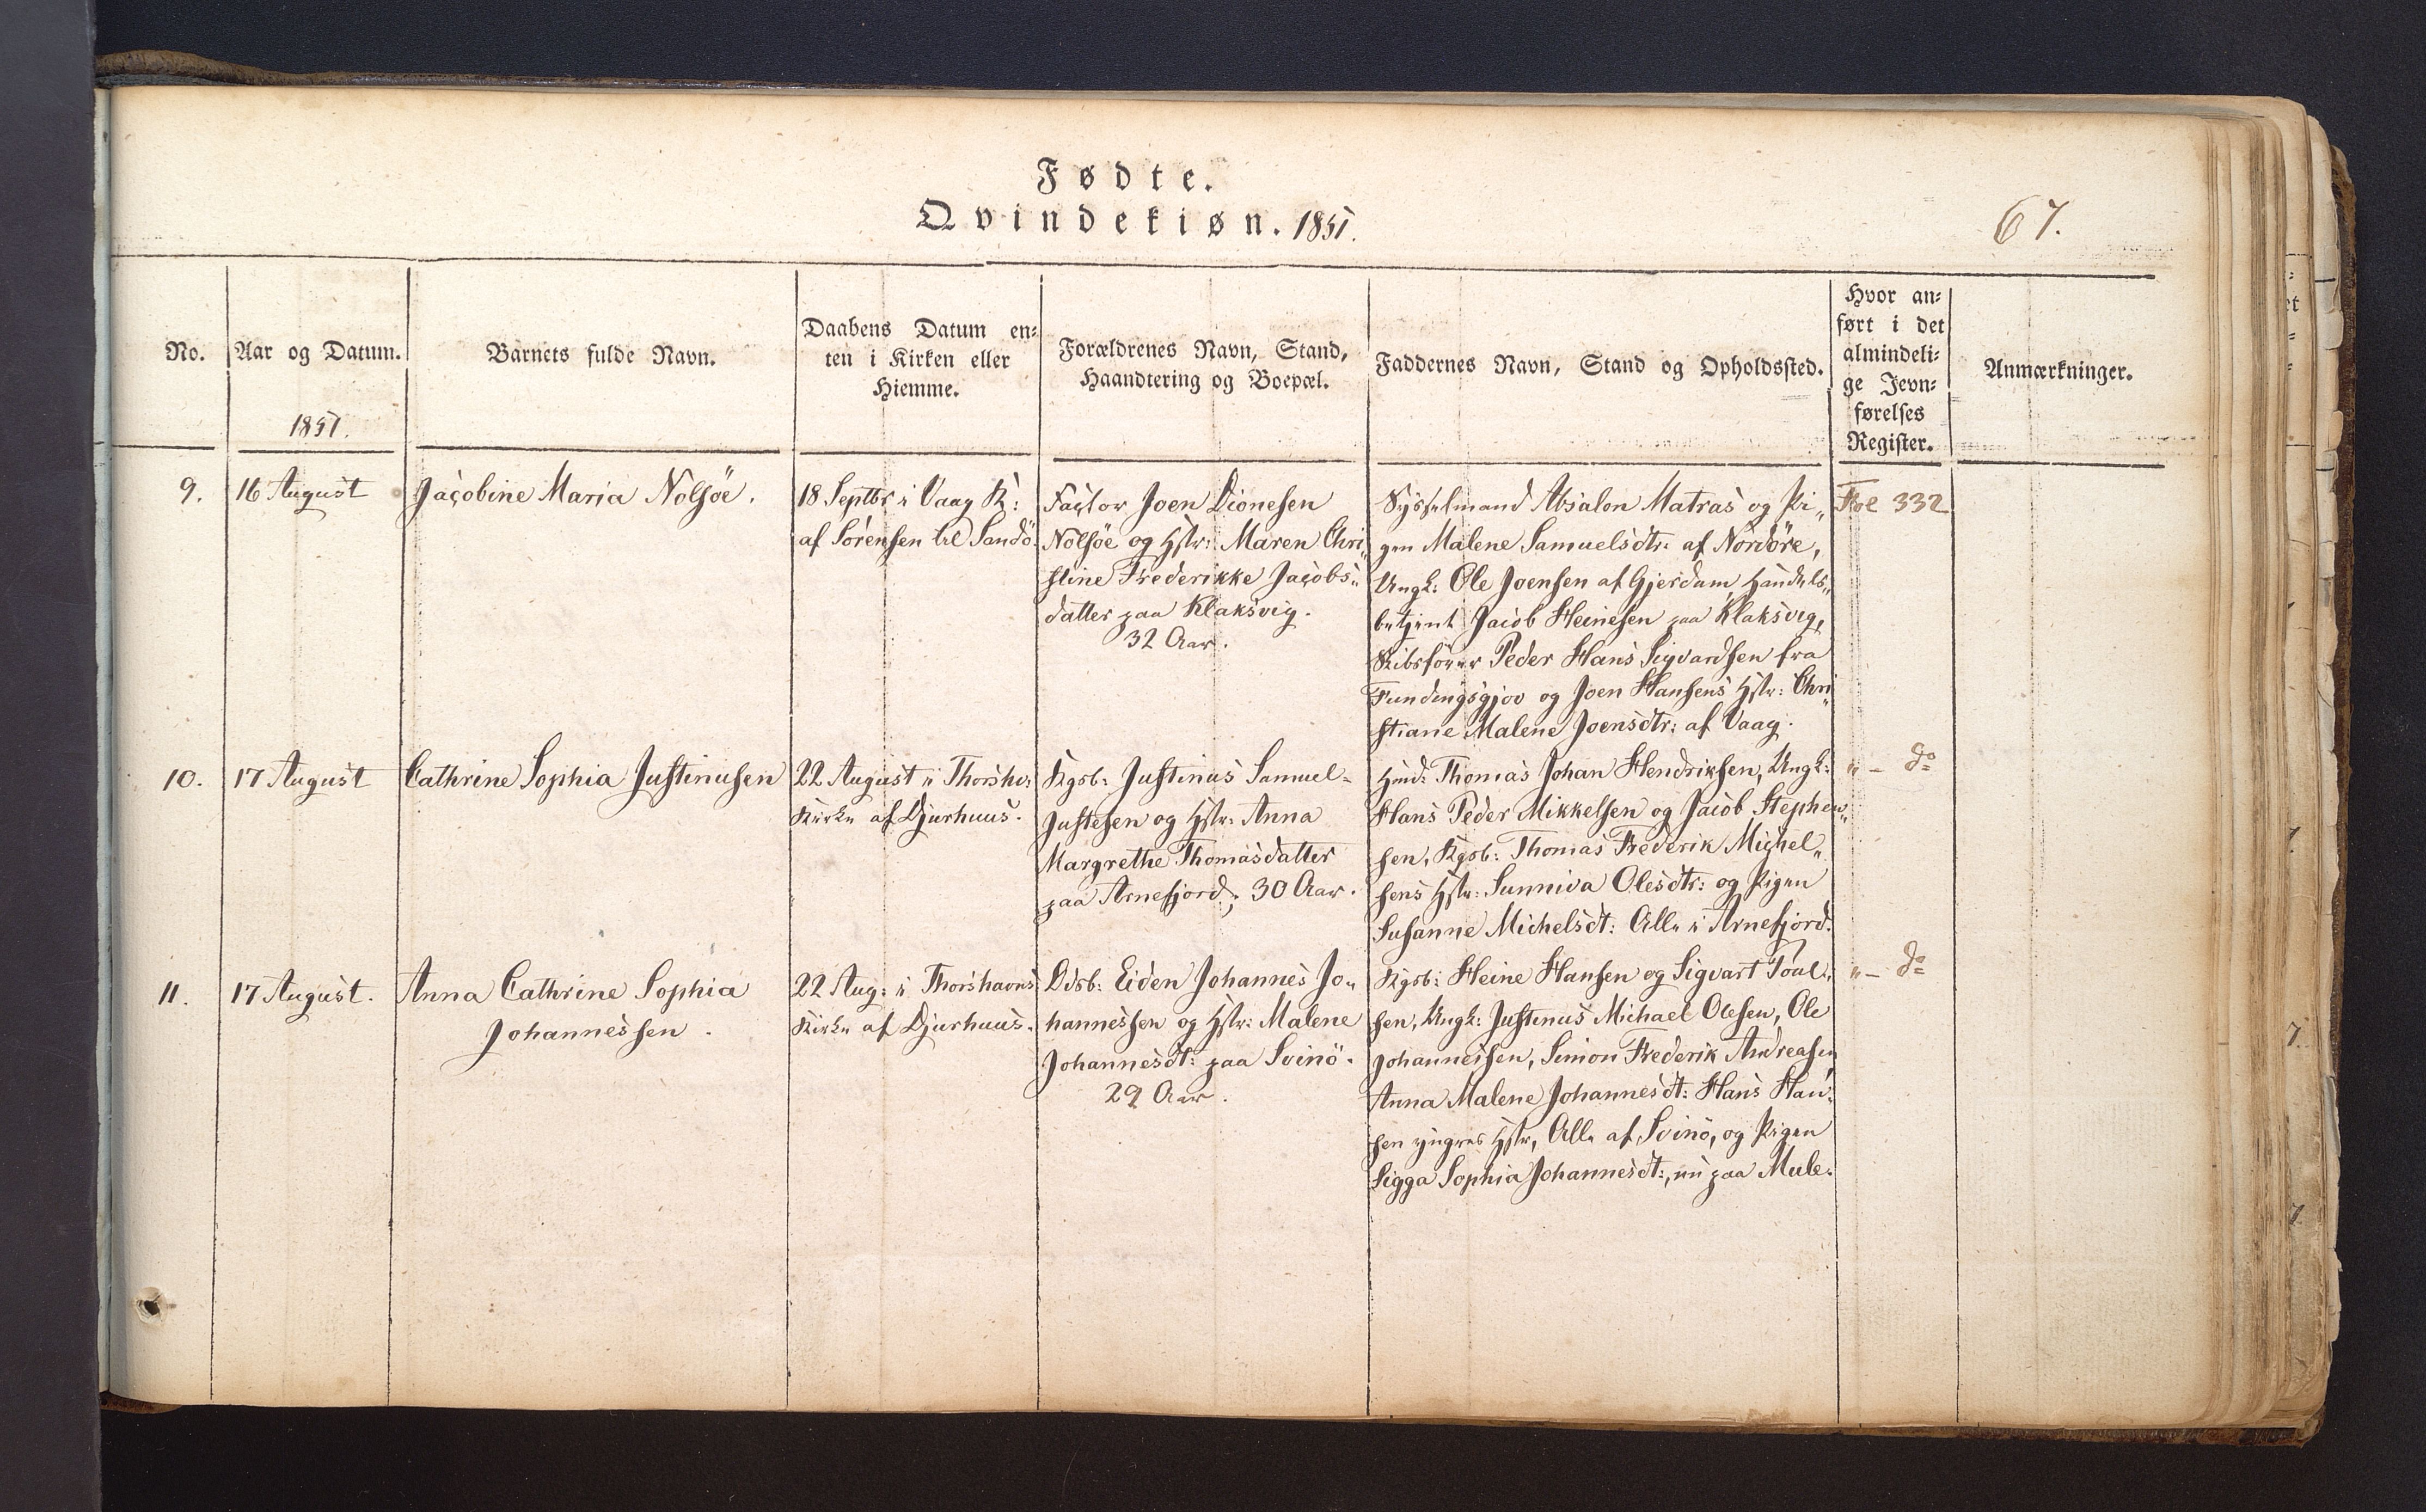 Fødte.
Qvindekiøn. 1851.
67.
No.
Aar og Datum.
1851.
Barnets fulde Navn.
Daabens Datum en-
ten i Kirken eller
Hiemme.
Forældrenes Navn, Stand,
Haandtering og Boepæl.
Faddernes Navn, Stand og Opholdssted.
Hvor an-
ført i det
almindeli-
ge Jevn-
førelses
Register.
Anmærkninger.
9.
16 August
Jacobine Maria Nolsöe.
18 Septbr i Vaag K:
af Sörensen til Sandö.
Factor Joen Dionesen
Nolsöe og Hstr: Maren Chri„
stine Frederikke Jacobs„
datter paa Klaksvig.
32 Aar.
Sysselmand Absalon Matras og Pi„
gen Malene Samuelsdtr: af Nordöre,
Ungk: Ole Joensen af Gjerdum, Handels„
betjent Jacob Heinesen paa Klaksvig,
Skibsförer Peder Hans Sigvardsen fra
Fundingsgjov og Joen Hansens Hstr: Chri„
stiane Malene Joensdtr: af Vaag.
Fol 332
10.
17 August
Cathrine Sophia Justinusen
22 August i Thorshv:
Kirke af Djurhuus.
Kgsb: Justinus Samuel-
Justesen og Hstr: Anna
Margrethe Thomasdatter
paa Arnefjord; 30 Aar.
Huusd: Thomas Johan Hendriksen, Ungk:
Hans Peder Mikkelsen og Jacob Stephen„
sen, Kgsb: Thomas Frederik Michel„
sens Hstr: Sunniva Olesdtr: og Pigen
Susanne Michelsdt: Alle i Arnefjord.
„ - do
11.
17 August.
Anna Cathrine Sophia
Johannessen.
22 Aug: i Thorshavns
Kirke af Djurhuus.
Odsb: Eiden Johannes Jo„
hannessen og Hstr: Malene
Johannesdt: paa Svinö.
29 Aar.
Kgsb: Heine Hansen og Sigvart Poul„
sen, Ungk: Justinus Michael Olesen, Ole
Johannessen, Simon Frederik Andreasen,
Anna Malene Johannesdt: Hans Han„
sen yngres Hstr, Alle af Svinö, og Pigen
Sigga Sophia Johannesdt:, nu paa Mule.
„ - do